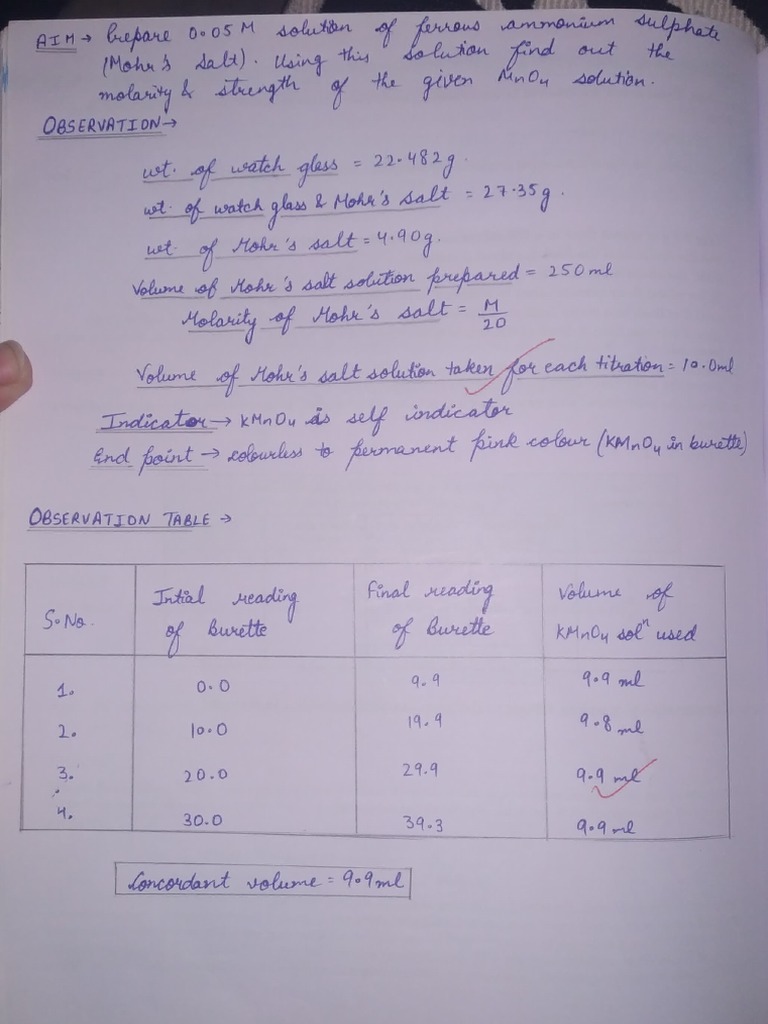 AIM → Prepare 0.05 M solution of ferrous ammonium sulphate
(Mohr's salt). Using this solution find out the
molarity & strength of the given MnO4 solution.
OBSERVATION →
wt. of watch glass = 22.482g.
wt. of watch glass & Mohr's salt = 27.35g.
wt. of Mohr's salt = 4.90g.
Volume of Mohr's salt solution prepared = 250 ml
Molarity of Mohr's salt = M/20
Volume of Mohr's salt solution taken for each titration = 10.0ml
Indicator → KMnO4 is self indicator
End point → colourless to permanent pink colour (KMnO4 in burette)
OBSERVATION TABLE →
S.No. Intial reading of Burette Final reading of Burette Volume of KMnO4 solⁿ used
1. 0.0 9.9 9.9 ml
2. 10.0 19.9 9.8 ml
3. 20.0 29.9 9.9 ml
4. 30.0 39.3 9.9 ml
Concordant volume = 9.9ml